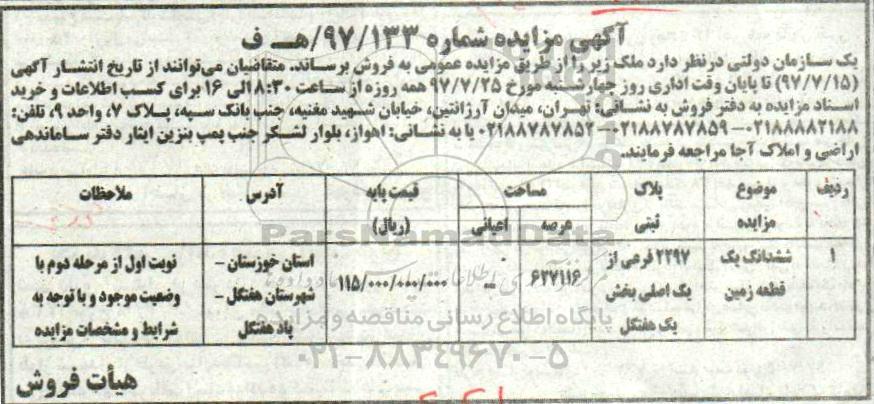 آگهی مزایده شماره ۹۷/۱۳۳/هـ ف
یک سازمان دولتی درنظر دارد ملک زیر را از طریق مزایده عمومی به فروش برساند. متقاضیان می‌توانند از تاریخ انتشار آگهی
(۹۷/۷/۱۵) تا پایان وقت اداری روز چهارشنبه مورخ ۹۷/۷/۲۵ همه روزه از ساعت ۸:۳۰ الی ۱۶ برای کسب اطلاعات و خرید
اسناد مزایده به دفتر فروش به نشانی: تهران، میدان آرژانتین، خیابان شهید مغنیه، جنب بانک سپه، پلاک ۷، واحد ۹، تلفن:
۰۲۱۸۸۸۸۲۱۸۸–۰۲۱۸۸۷۸۷۸۵۹–۰۲۱۸۸۷۸۷۸۵۲ یا به نشانی: اهواز، بلوار لشکر جنب پمپ بنزین ایثار دفتر ساماندهی
اراضی و املاک آجا مراجعه فرمایند.
ردیف موضوع مزایده پلاک ثبتی مساحت عرصه اعیانی قیمت پایه (ریال) آدرس ملاحظات
۱ ششدانگ یک ۲۲۹۷ فرعی از ۶۲۷۱۱۶ - ۱۱۵/۰۰۰/۰۰۰/۰۰۰ استان خوزستان – نوبت اول از مرحله دوم با
قطعه زمین یک اصلی بخش شهرستان هفتگل – وضعیت موجود و با توجه به
یک هفتگل پاد هفتگل شرایط و مشخصات مزایده
هیأت فروش
ParsNamadData
پایگاه اطلاع رسانی مناقصه و مزایده
۰۲۱-۸۸۳۴۹۶۷۰-۵